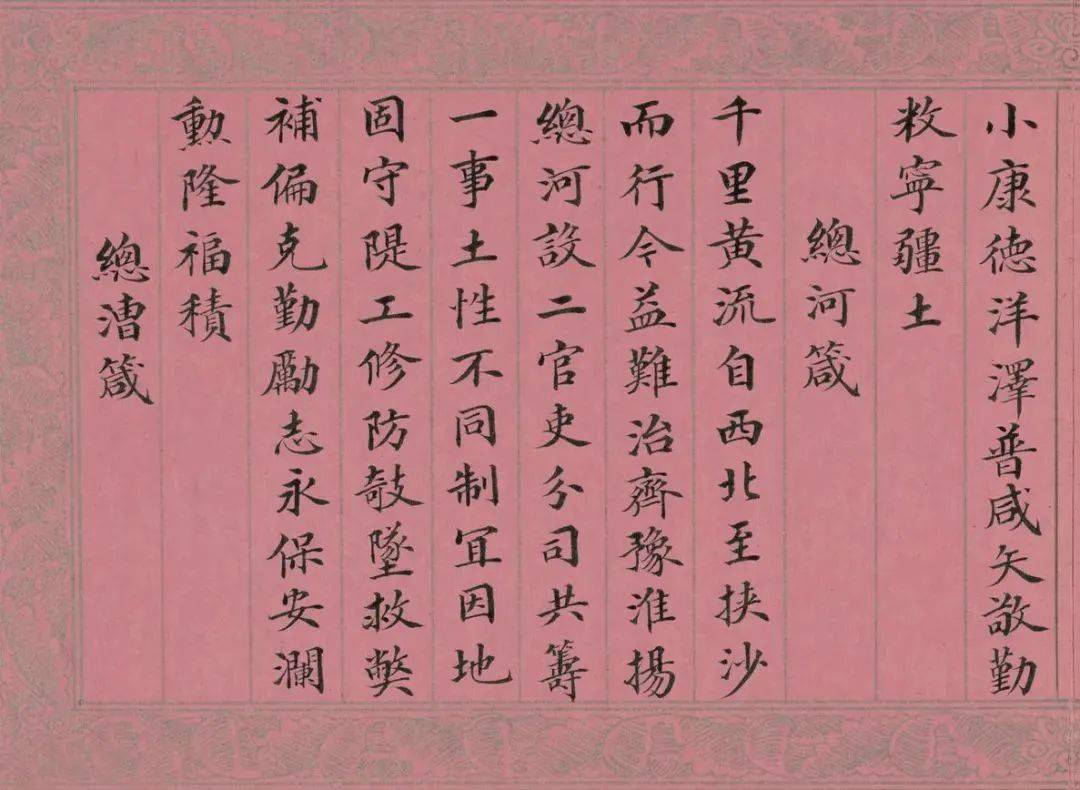 小康德洋澤普咸矢敬勤
敉寧疆土
總河箴
千里黃流自西北至挾沙
而行今益難治齊豫淮揚
總河設二官吏分司共籌
一事土性不同制宜因地
固守隄工修防攲墜救弊
補偏克勤勵志永保安瀾
勳隆福積
總漕箴